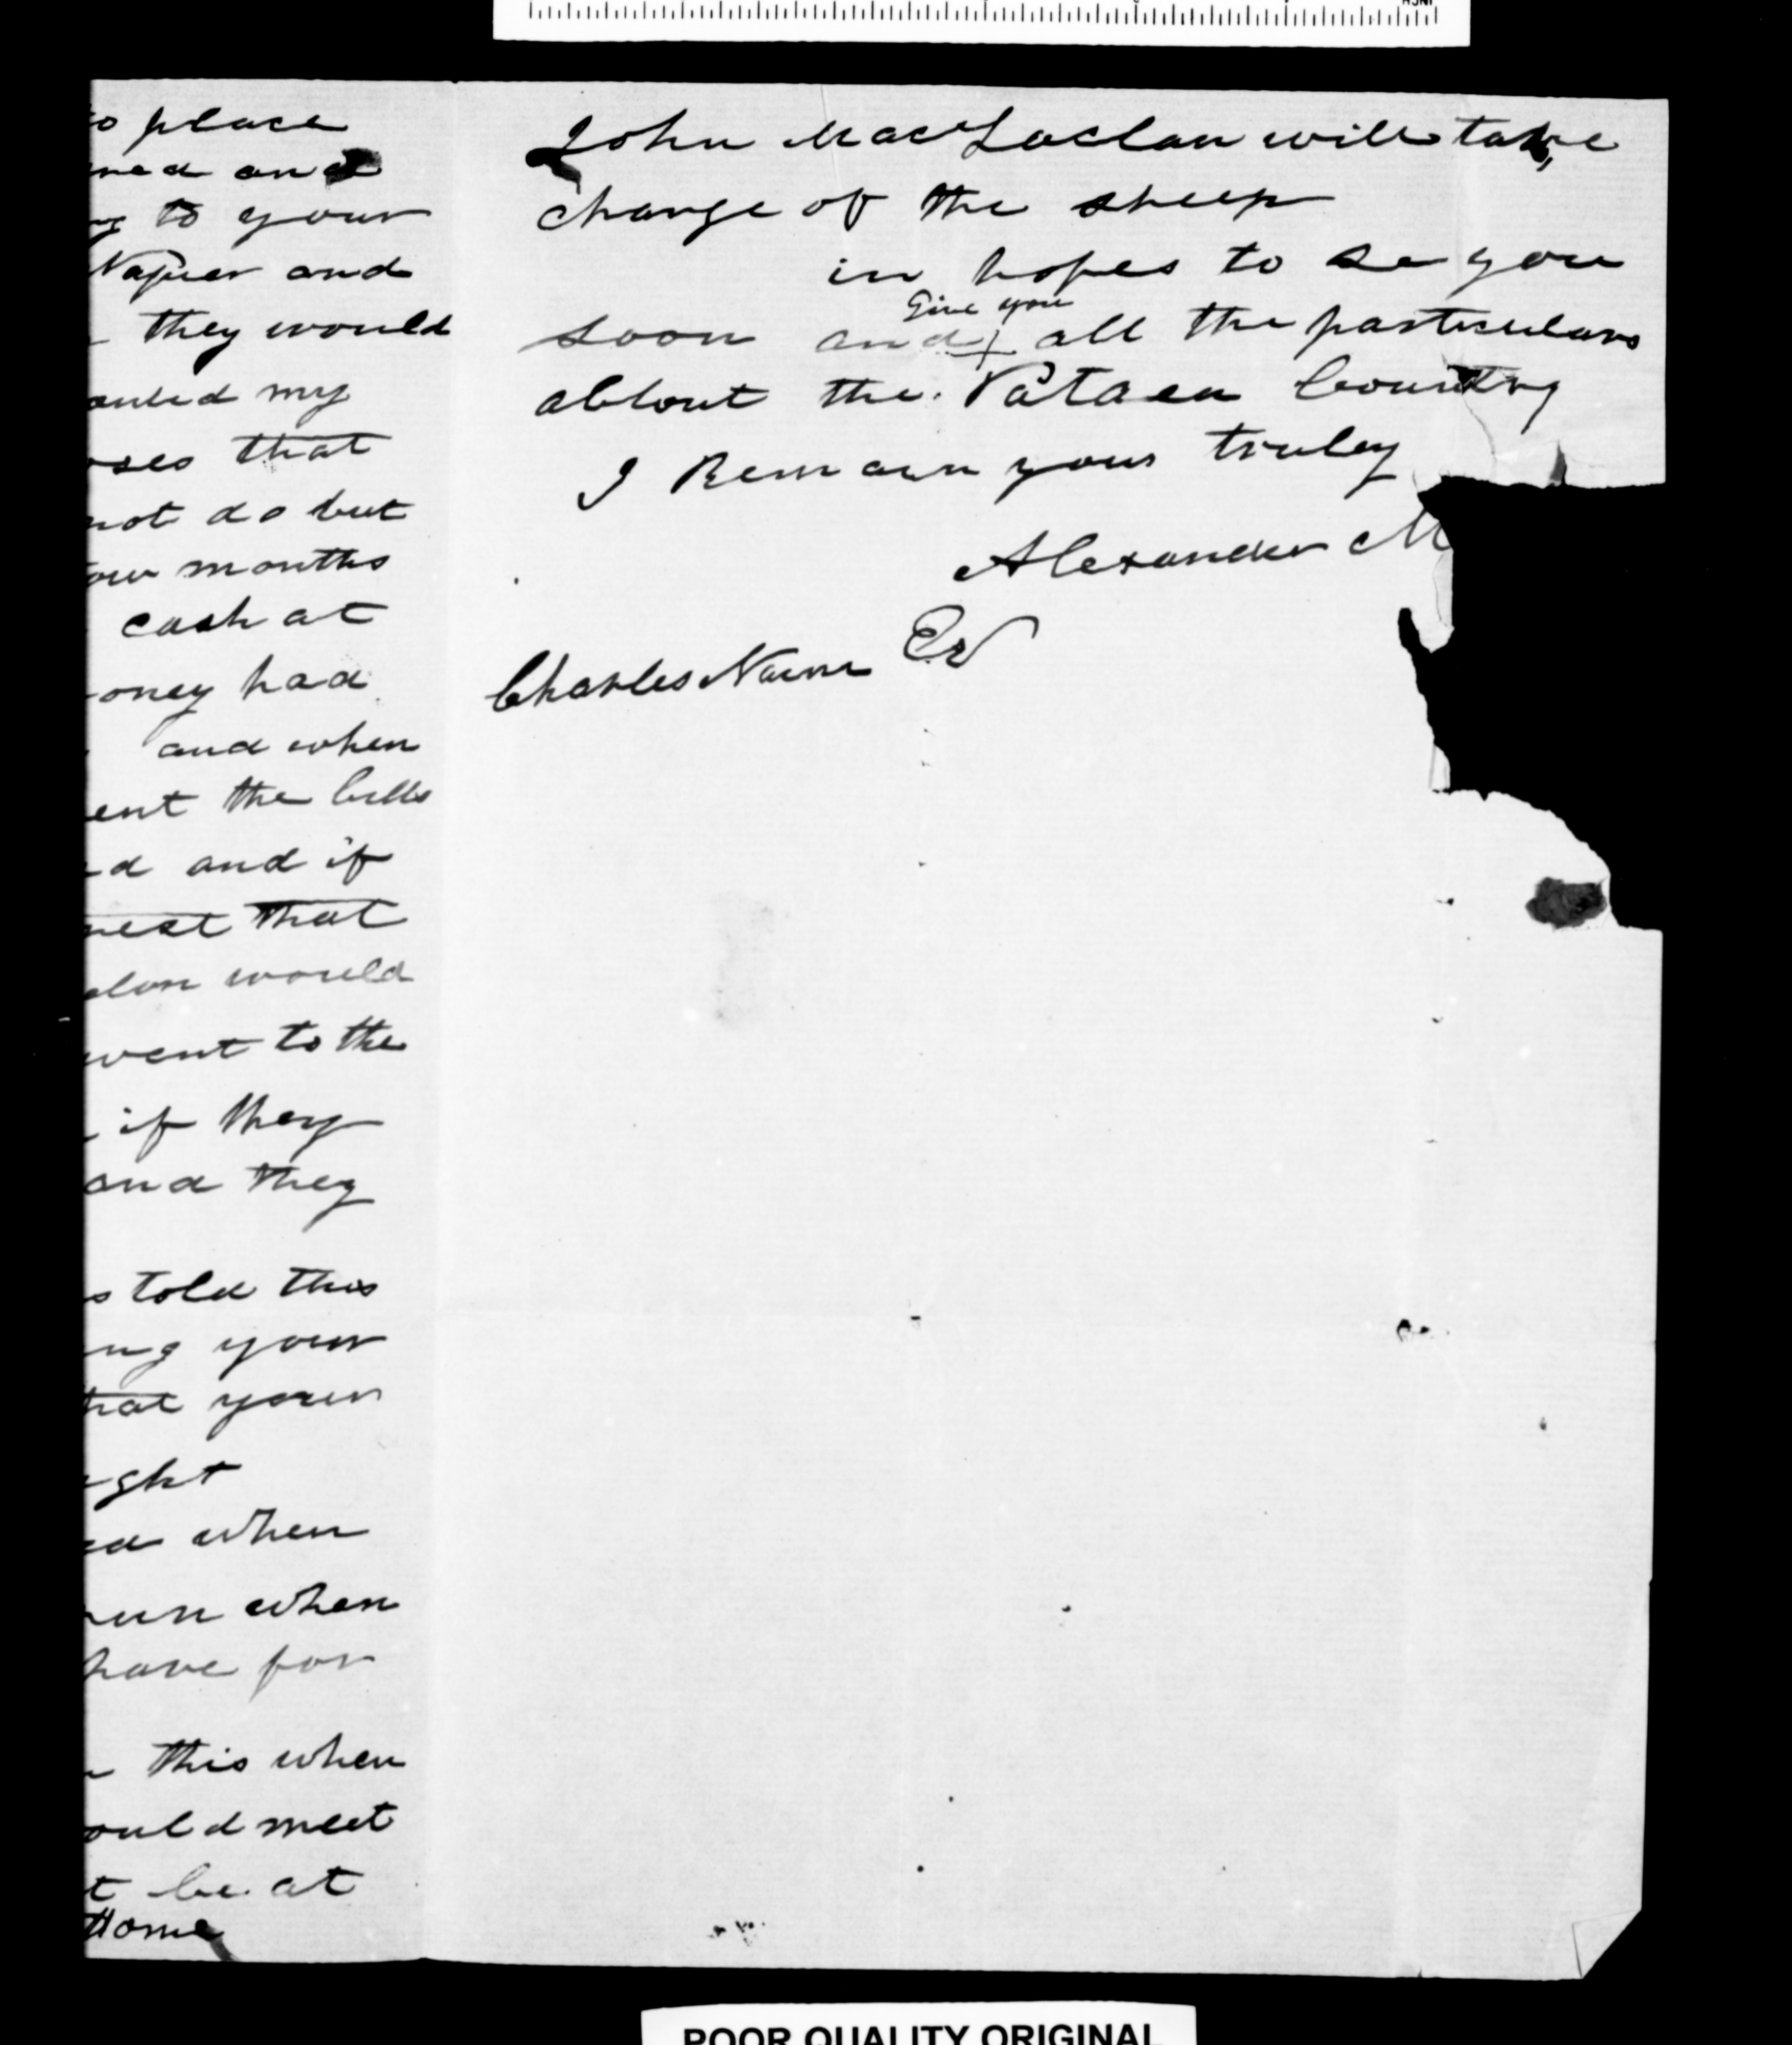 o place
ned and
ng to your
Napier and
they would
anted my
oses that
not do but
ow months
cash at
oney had
and when
ent the bills
d and if
nest that
don would
went to the
if they
and they
s told this
ng your
hat your
ght
ed when
run when
have for
this when
ould meet
t be at
Home
John MacLaclan will take
charge of the sheep
in hopes to se you
Give you
soon and all the particulars
about the Pataea Country
I Remain your truley
Alexander M
Charles Nairn Es
POOR QUALITY ORIGINAL